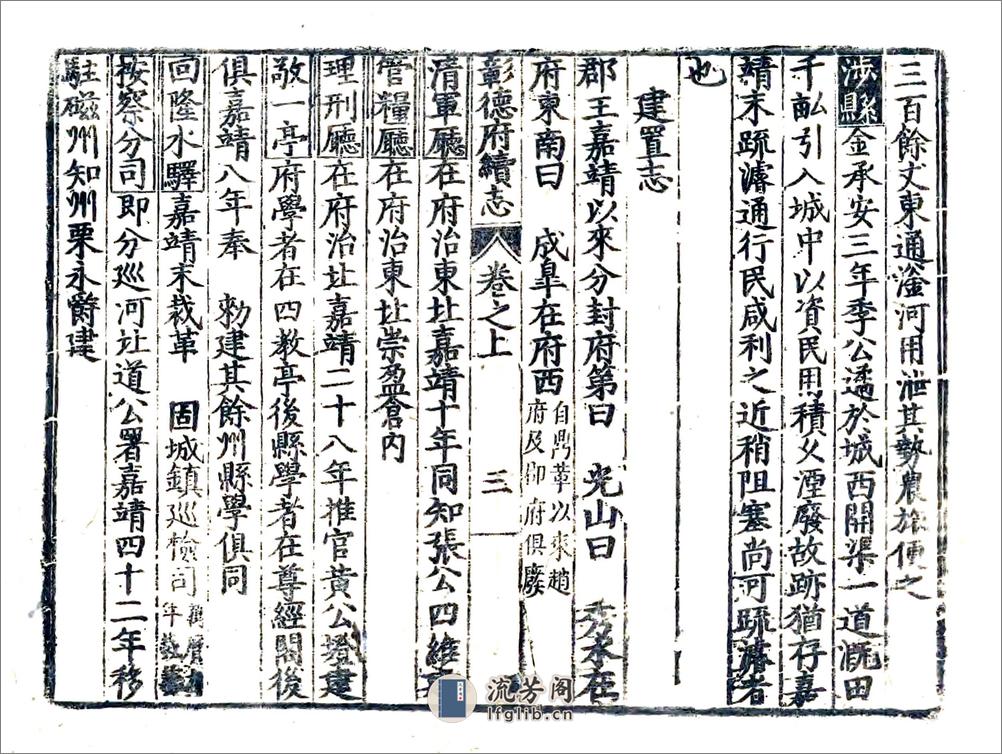 三百餘丈東通滏河用泄其勢農旅便之
涉縣金承安三年季公遹於城西開渠一道溉田
千畝引入城中以資民用積久湮廢故跡猶存嘉
靖末疏濬通行民咸利之近稍阻塞尚河疏濬者
也
建置志
郡王嘉靖以來分封府第曰 光山曰 秀水在
府東南曰 成皐在府西自鼎革以來趙
府及仰府俱廢
彰德府續志 卷之上 三
清軍廳在府治東北嘉靖十年同知張公四維
管糧廳在府治東北崇盈倉內
理刑廳在府治北嘉靖二十八年推官黃公
敬一亭府學者在四教亭後縣學者在尊經閣後
俱嘉靖八年奉 勑建其餘州縣學俱同
回隆水驛嘉靖末裁革 固城鎮巡檢司萬曆
年裁革
按察分司即分巡河北道公署嘉靖四十二年移
駐磁州知州栗永爵建
流芳阁
lfglib.cn